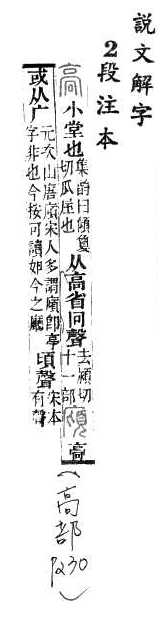 說文解字
2段注本
小堂也
集韵曰傾夐
切瓜屋也
从高省冋聲
去潁切
十一部
或从广
元次山唐廎宋人多謂廎卽亭
字非也今按可讀如今之廳
頃聲
宋本
有聲
(高部
P230)